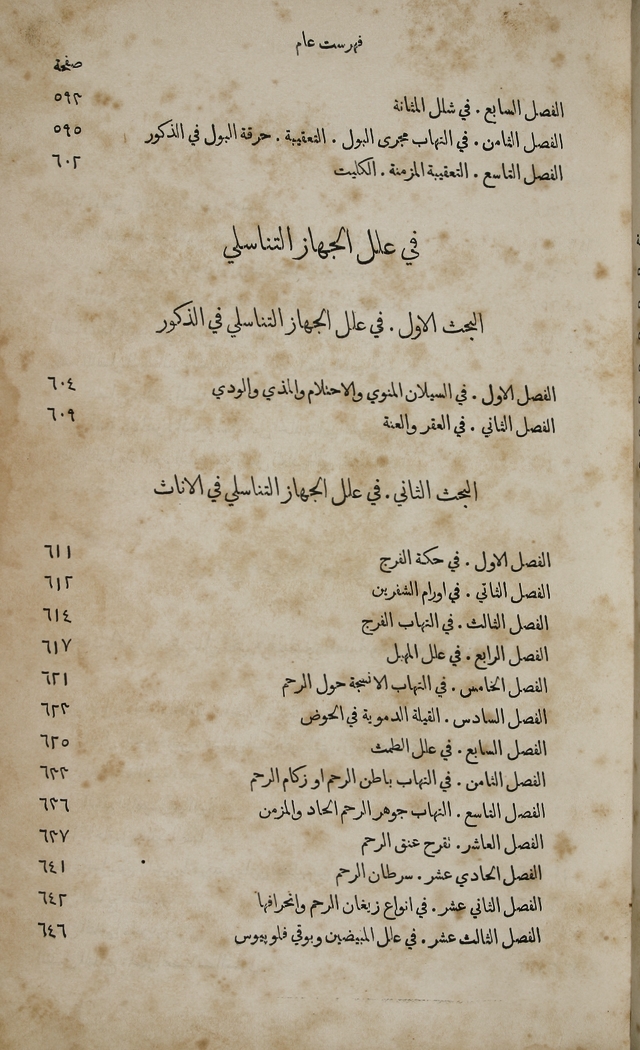 فهرست عام
صفحة
الفصل السابع . في شلل المثانة ٥٩٣
الفصل الثامن . في التهاب مجرى البول . التعقيبة . حرقة البول في الذكور ٥٩٥
الفصل التاسع . التعقيبة المزمنة . الكليت ٦٠٢
في علل الجهاز التناسلي
البحث الاول . في علل الجهاز التناسلي في الذكور
الفصل الاول . في السيلان المنوي والاحتلام والمذي والودي ٦٠٤
الفصل الثاني . في العقر والعنة ٦٠٩
البحث الثاني . في علل الجهاز التناسلي في الاناث
الفصل الاول . في حكة الفرج ٦١١
الفصل الثاني . في اورام الشفرين ٦١٣
الفصل الثالث . في التهاب الفرج ٦١٤
الفصل الرابع . في علل المهبل ٦١٧
الفصل الخامس . في التهاب الانسجة حول الرحم ٦٢١
الفصل السادس . القيلة الدموية في الحوض ٦٢٣
الفصل السابع . في علل الطمث ٦٢٥
الفصل الثامن . في التهاب باطن الرحم او زكام الرحم ٦٣٣
الفصل التاسع . التهاب جوهر الرحم الحاد والمزمن ٦٣٦
الفصل العاشر . تقرح عنق الرحم ٦٣٧
الفصل الحادي عشر . سرطان الرحم ٦٤١
الفصل الثاني عشر . في انواع زيغان الرحم وانحرافها ٦٤٣
الفصل الثالث عشر . في علل المبيضين وبوقي فلوبيوس ٦٤٦